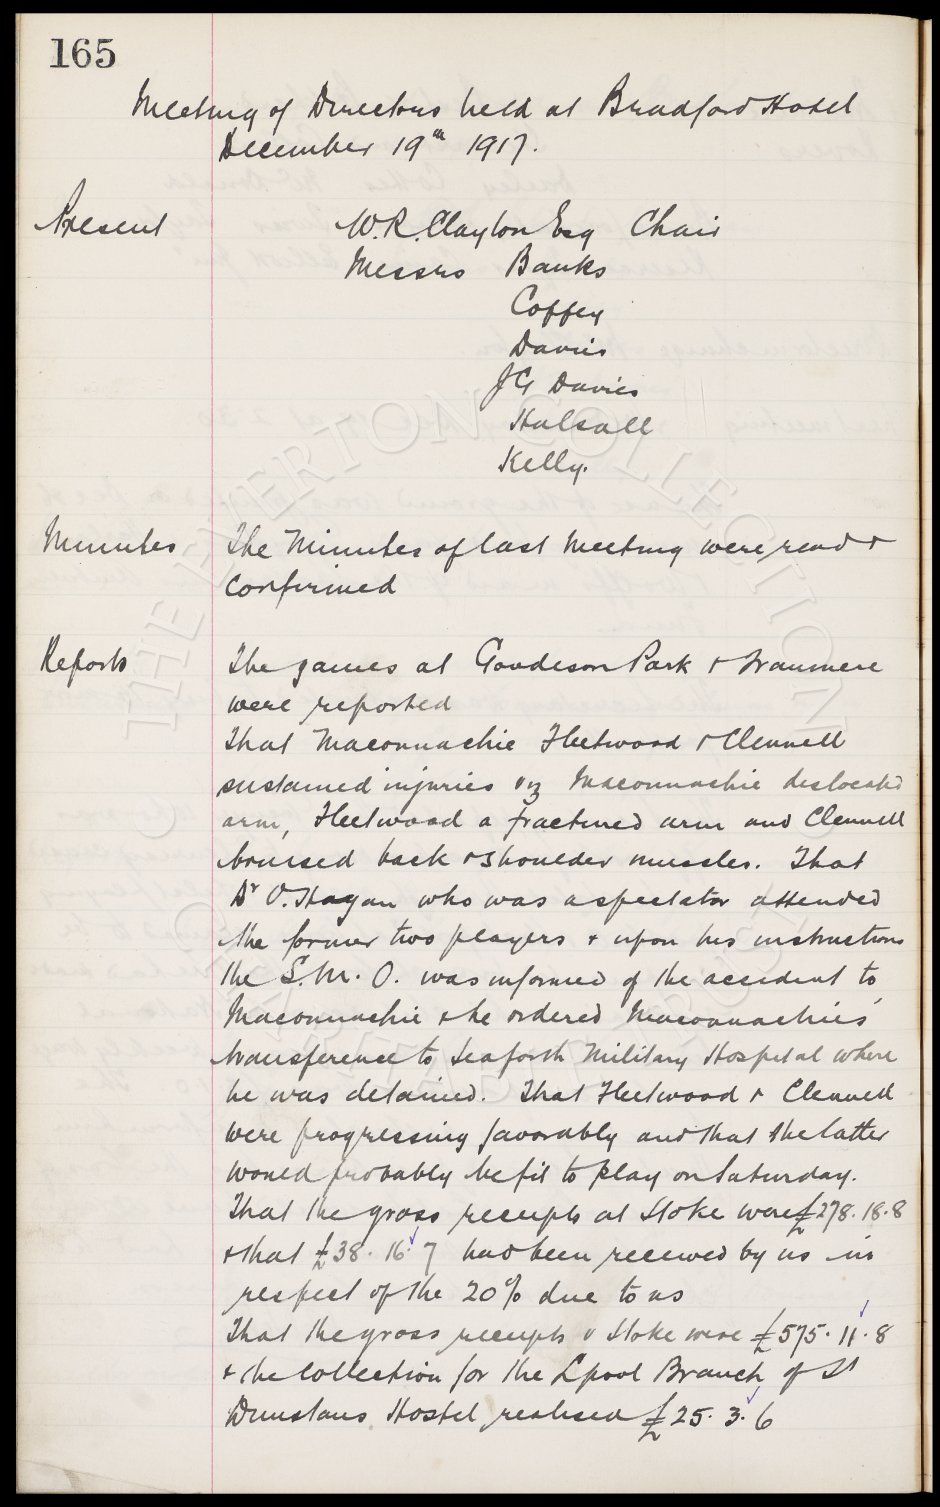 165
Meeting of Directors held at Bradford Hotel
December 19th 1917.
Present W.R. Clayton Esq Chair
Messrs Banks
Coffey
Davies
JC Davies
Halsall
Kelly.
Minutes The Minutes of last Meeting were read +
Confirmed
Reports The games at Goodison Park + Tranmere
were reported
That Maconnachie Fleetwood + Clennell
sustained injuries viz Maconnachie dislocated
arm, Fleetwood a fractured arm and Clennell
bruised back + shoulder muscles. That
Dr O.Hagan who was a spectator attended
the former two players + upon his instructions
the S.M.O. was informed of the accident to
Maconnachie + he ordered Maconnachie's
transference to Seaforth Military Hospital where
he was detained. That Fleetwood + Clennell
were progressing favorably and that the latter
would probably be fit to play on Saturday.
That the gross receipts at Stoke were £278.18.8
+ that £38.16.7 had been received by us in
respect of the 20% due to us
That the gross receipts v Stoke were £575.11.8
+ the Collection for the Lpool Branch of St
Dunstans Hostel realised £25.3.6
THE EVERTON COLLECTION
CHARITABLE TRUST